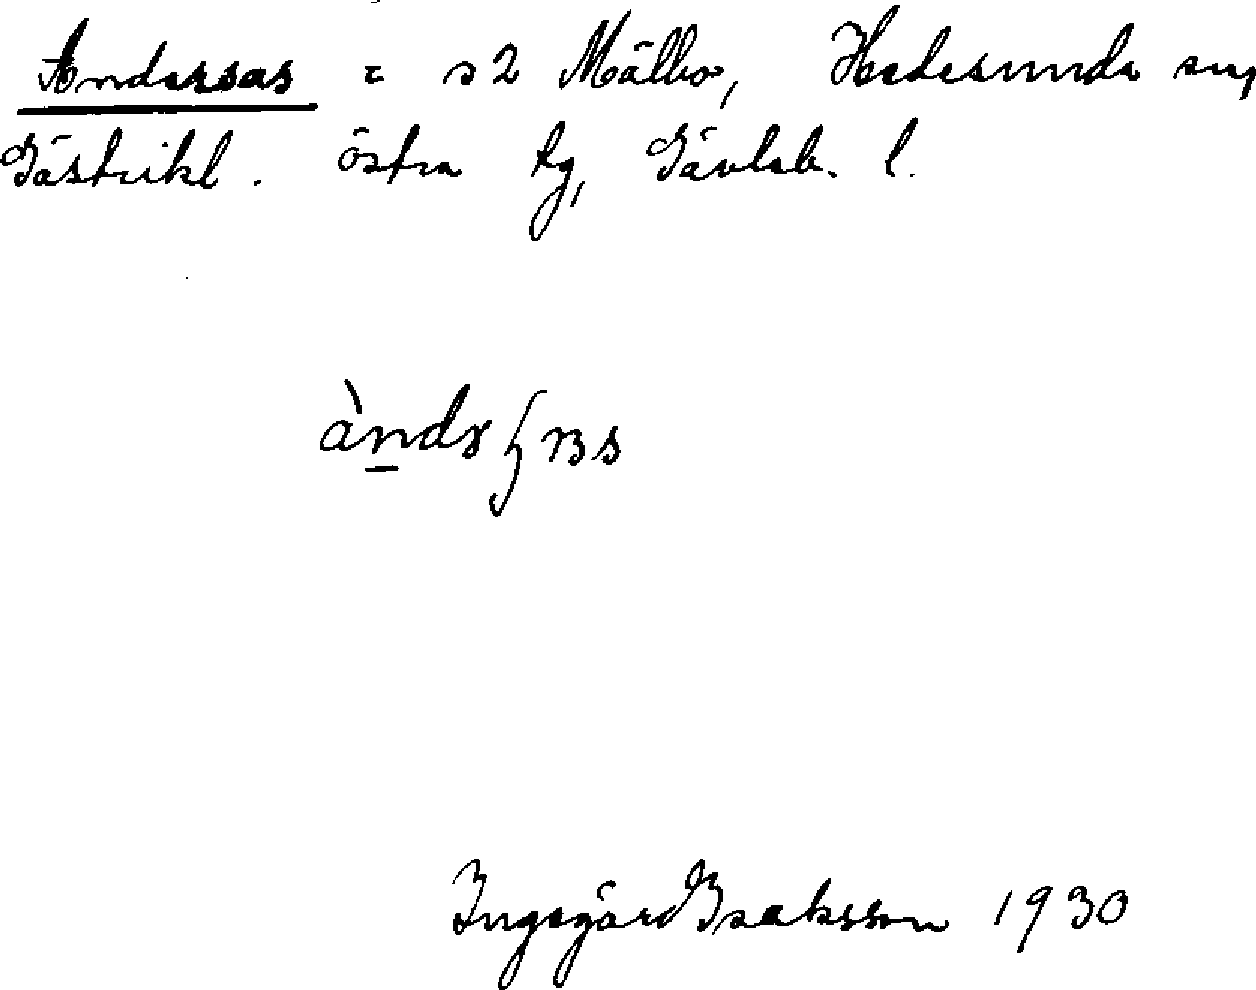 Anderssas = s2 Mälbo, Hedesunda sn,
Gästrikl. östra tg, Gävleb. l.
Ingegärd Isaksson 1930